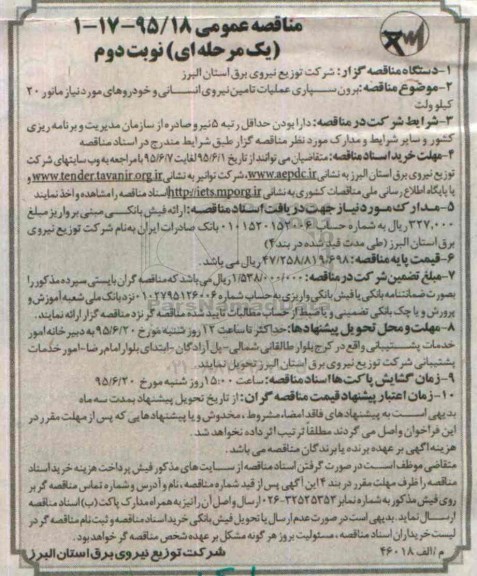 مناقصه عمومی ۹۵/۱۸-۱۷-۱
(یک مرحله ای) نوبت دوم
۱-دستگاه مناقصه گزار: شرکت توزیع نیروی برق استان البرز
۲-موضوع مناقصه: برون سپاری عملیات تامین نیروی انسانی و خودروهای مورد نیاز مانور ۲۰
کیلو ولت
۳-شرایط شرکت در مناقصه: دارا بودن حداقل رتبه ۵ نیرو صادره از سازمان مدیریت و برنامه ریزی
کشور و سایر شرایط و مدارک مورد نظر مناقصه گزار طبق شرایط مندرج در اسناد مناقصه
۴-مهلت خرید اسناد مناقصه: متقاضیان می توانند از تاریخ ۹۵/۶/۱ لغایت ۹۵/۶/۷ با مراجعه به وب سایتهای شرکت
توزیع نیروی برق استان البرز به نشانی www.aepdc.ir، شرکت توانیر به نشانی www.tender.tavanir.org.ir و
یا پایگاه اطلاع رسانی ملی مناقصات کشوری به نشانی http//iets.mporg.ir اسناد مناقصه را مشاهده و اخذ نمایند
۵-مدارک مورد نیاز جهت دریافت اسناد مناقصه: ارائه فیش بانکی مبنی بر واریز مبلغ
۳۲۷,۰۰۰ ریال به شماره حساب ۰۱۰۱۵۲۰۱۵۲۰۰۶ بانک صادرات ایران به نام شرکت توزیع نیروی
برق استان البرز (طی مدت قید شده در بند۴)
۶-قیمت پایه مناقصه: ۴۷/۲۵۸/۸۱۹/۶۹۸ ریال می باشد.
۷-مبلغ تضمین شرکت در مناقصه: ۱/۵۳۸/۰۰۰/۰۰۰ ریال می باشد که مناقصه گران بایستی سپرده مذکور را
بصورت ضمانتنامه بانکی یا فیش بانکی واریزی به حساب شماره ۱۰۲۷۹۵۱۲۶۰۰۶ نزد بانک ملی شعبه آموزش و
پرورش و یا چک بانکی تضمینی و یا ضبط از حساب مطالبات تایید شده مناقصه گر نزد مناقصه گزار ارائه نمایند.
۸-مهلت و محل تحویل پیشنهادها: حداکثر تا ساعت ۱۲ روز شنبه مورخ ۹۵/۶/۲۰ به دبیرخانه امور
خدمات پشتیبانی واقع در کرج بلوار طالقانی شمالی- پل آزادگان -ابتدای بلوار امام رضا- امور خدمات
پشتیبانی شرکت توزیع نیروی برق استان البرز تحویل نمایند
۹-زمان گشایش پاکت ها اسناد مناقصه: ساعت ۱۵:۰۰ روز شنبه مورخ ۹۵/۶/۲۰
۱۰-زمان اعتبار پیشنهاد قیمت مناقصه گران: از تاریخ تحویل پیشنهاد بمدت سه ماه
بدیهی است به پیشنهادهای فاقد امضاء، مشروط، مخدوش و یا پیشنهادهایی که پس از مهلت مقرر در
این فراخوان واصل می گردند مطلقاً ترتیب اثر داده نخواهد شد.
هزینه آگهی بر عهده برنده یا برندگان مناقصه می باشد.
متقاضی موظف است در صورت گرفتن اسناد مناقصه از سایت های مذکور فیش پرداخت هزینه خرید اسناد
مناقصه را ظرف مهلت مقرر در بند ۴ این آگهی پس از قید شماره مناقصه، نام و آدرس و شماره تماس مناقصه گر بر
روی فیش مذکور به شماره نمابر ۳۲۵۲۵۳۵۳-۰۲۶ ارسال و اصل آن را نیز به همراه مدارک پاکت (ب) اسناد مناقصه
ارسال نماید. بدیهی است در صورت عدم ارسال یا تحویل فیش بانکی خرید اسناد مناقصه و ثبت نام مناقصه گر در
لیست خریداران اسناد مناقصه، مسئولیت بروز هر گونه مشکل بر عهده شخص مناقصه گر خواهد بود.
م / الف ۴۶۰۱۸ شرکت توزیع نیروی برق استان البرز